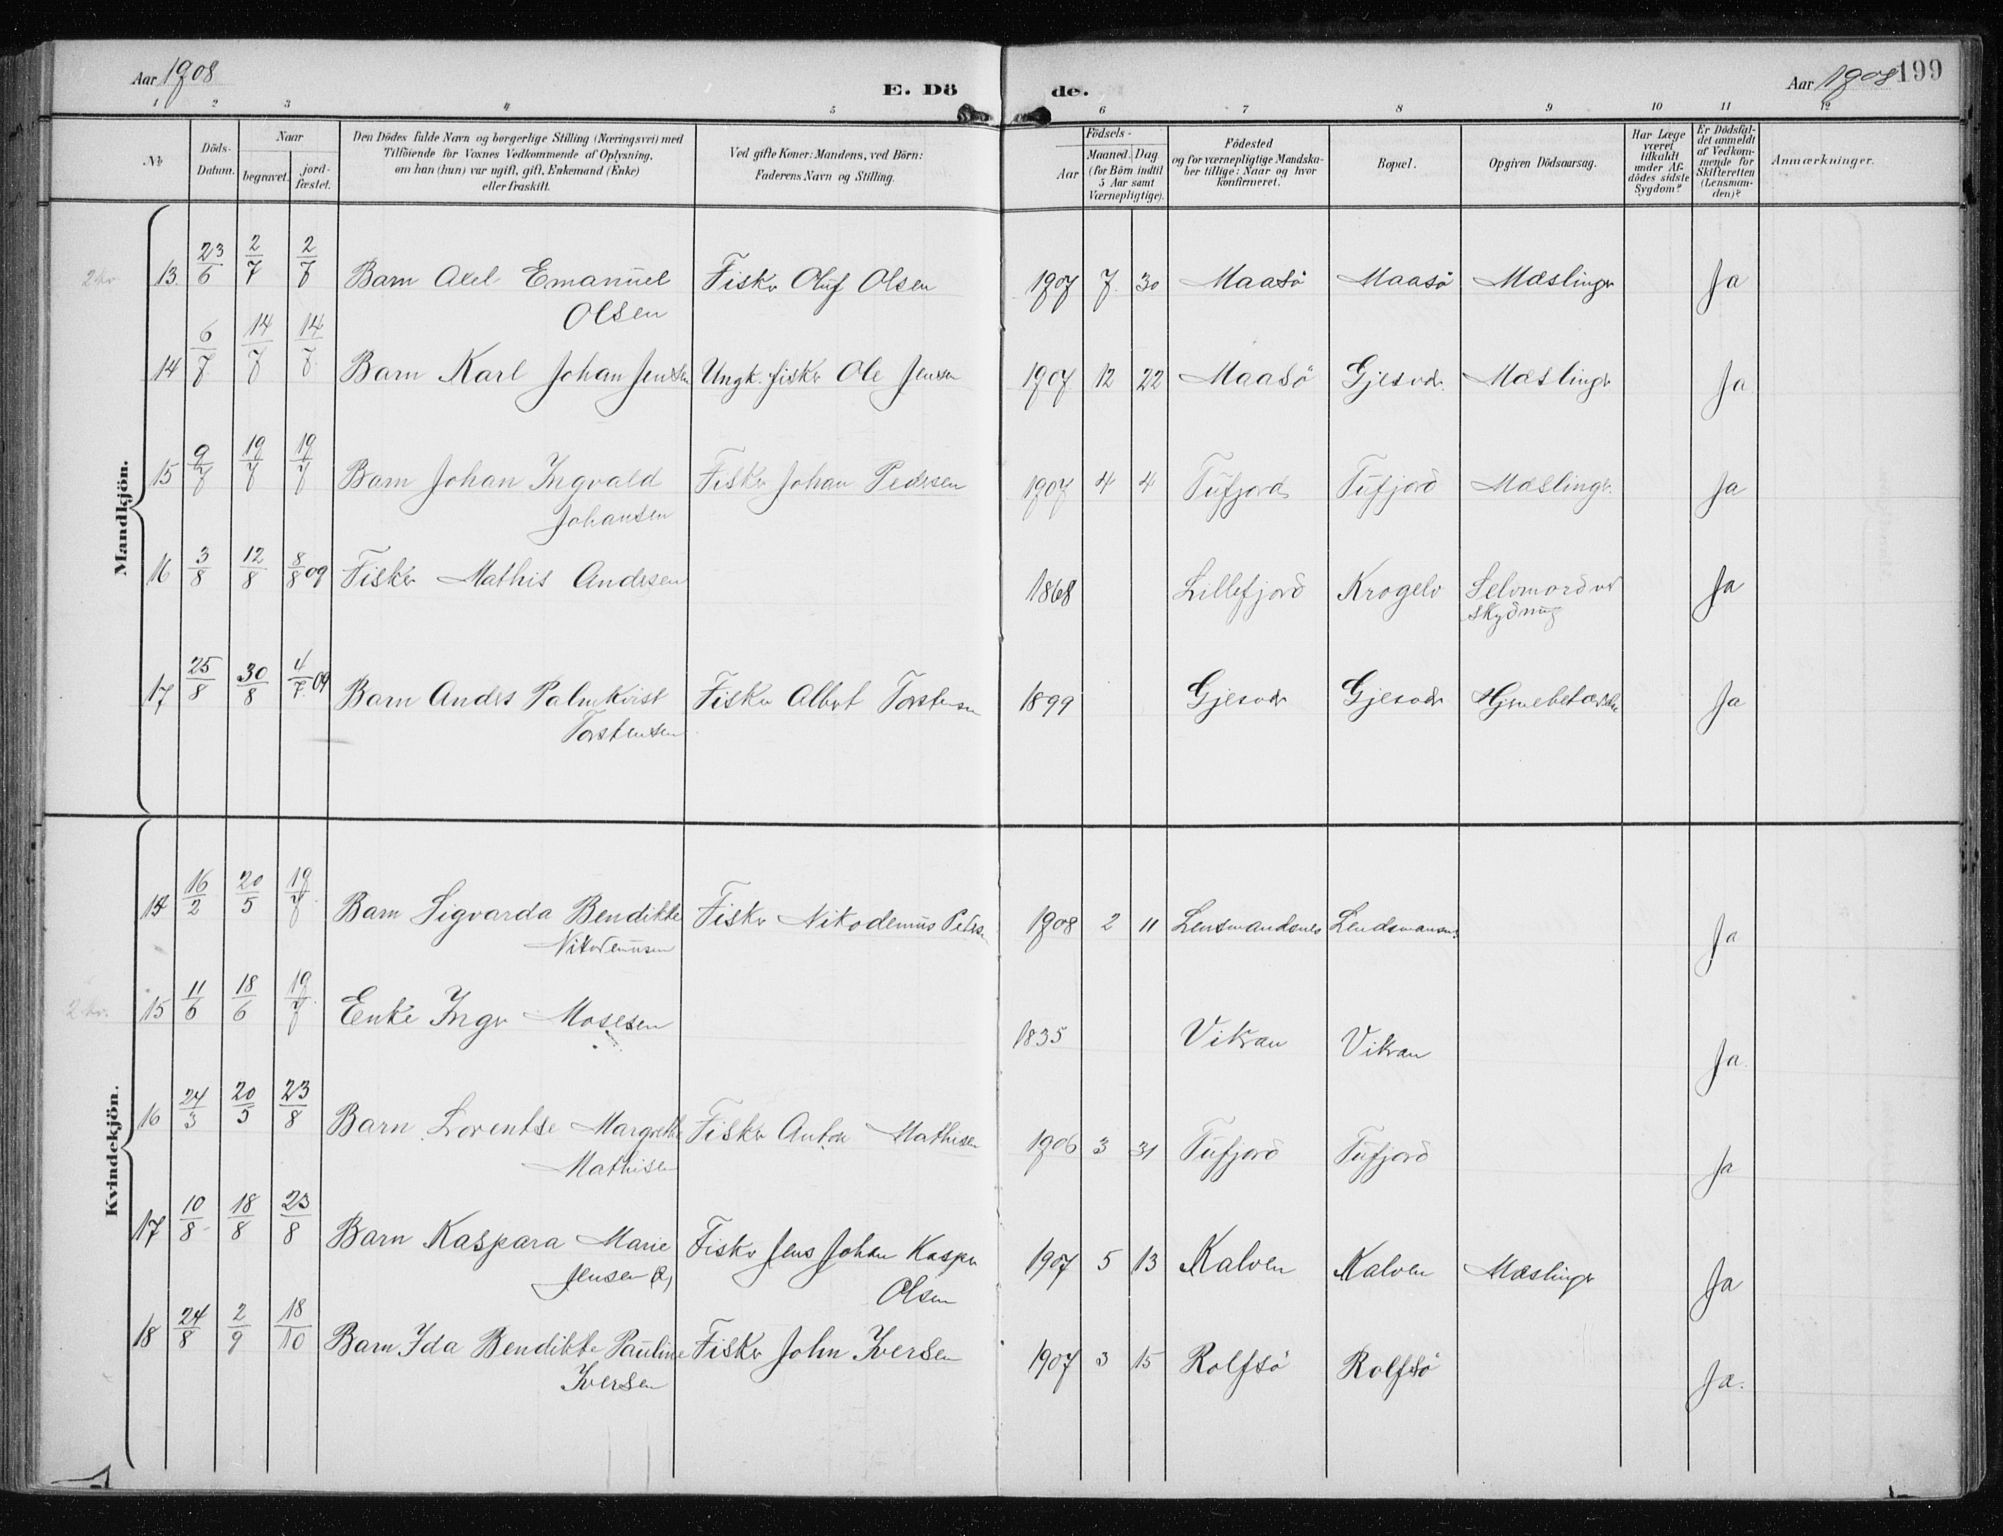 Aar 1908
E. Dö
de.
Aar 1908 199
1 2 3 4 5 6 7 8 9 10 11 12
No
Döds-
Datum.
Naar
begravet.
jord-
fæstet.
Den Dödes fulde Navn og borgerlige Stilling (Næringsvei) med
Tilföiende for Voxnes Vedkommende af Oplysning,
om han (hun) var ugift, gift, Enkemand (Enke)
eller fraskilt.
Ved gifte Koner: Mandens, ved Börn:
Faderens Navn og Stilling.
Födsels-
Aar
Maaned. Dag
(for Börn indtil
5 Aar samt
Værnepligtige).
Födested
og for værnepligtige Mandska-
ber tillige: Naar og hvor
konfirmeret.
Bopæl.
Opgiven Dödsaarsag.
Har Læge
været
tilkaldt
under Af-
dödes sidste
Sygdom?
Er Dödsfal-
det anmeldt
af Vedkom-
mende for
Skifteretten
(Lensman-
den)?
Anmærkninger.
Mandkjön.
2 kr 13 23/6 2/7 2/7 Barn Axel Emanuel Fisker Oluf Olsen 1907 7 30 Maasö Maasö Mæslinger Ja
Olsen
14 6/7 14/7 14/7 Barn Karl Johan Jensen Ungk. fisker Ole Jensen 1907 12 22 Maasö Gjesvær Mæslinger Ja
15 9/7 19/7 19/7 Barn Johan Ingvald Fisker Johan Pedersen 1907 4 4 Tufjord Tufjord Mæslinger Ja
Johansen
16 3/8 12/8 8/8 09 Fisker Mathis Andersen 1868 Lillefjord Krogelv Selvmord ved Ja
skydning
17 25/8 30/8 4/7 09 Barn Anders Palmkvist Fisker Albert Torstensen 1899 Gjesvær Gjesvær Hjernebetændelse Ja
Torstensen
Kvindekjön.
14 16/2 20/5 19/7 Barn Sigvarda Bendikte Fisker Nikodemus Pedersen 1908 2 11 Lensmandsnes Lendsmansn. Ja
Nikodemusen
2 kr. 15 11/6 18/6 19/7 Enke Inger Mosesen 1835 Vikran Vikran Ja
16 24/3 20/5 23/8 Barn Lorentse Margrethe Fisker Anton Mathisen 1906 3 31 Tufjord Tufjord Ja
Mathisen
17 10/8 18/8 23/8 Barn Kaspara Marie Fisker Jens Johan Kasper 1907 5 13 Kalven Kalven Mæslinger Ja
Jensen
Olsen
18 24/8 2/9 18/10 Barn Ida Bendikte Pauline Fisker John Iversen 1907 3 15 Rolfsö Rolfsö Ja.
Iversen